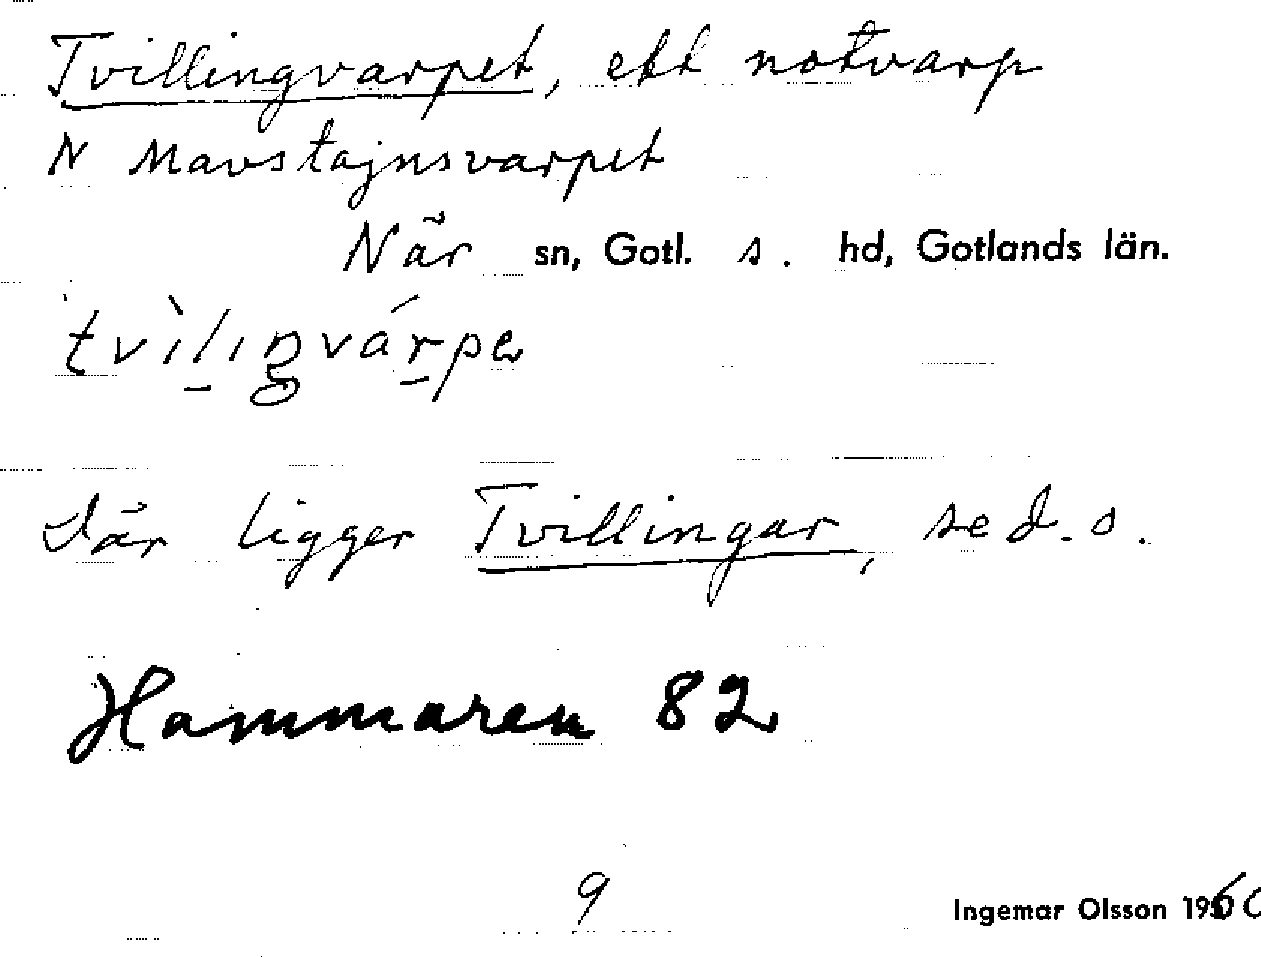 Tvillingvarpet, ett notvarp
N Mavstajnsvarpet
När sn, Gotl. s. hd, Gotlands län.
tvìlıŋvárpə
Där ligger Tvillingar, se d. o.
Hammaren 82
9
Ingemar Olsson 1960